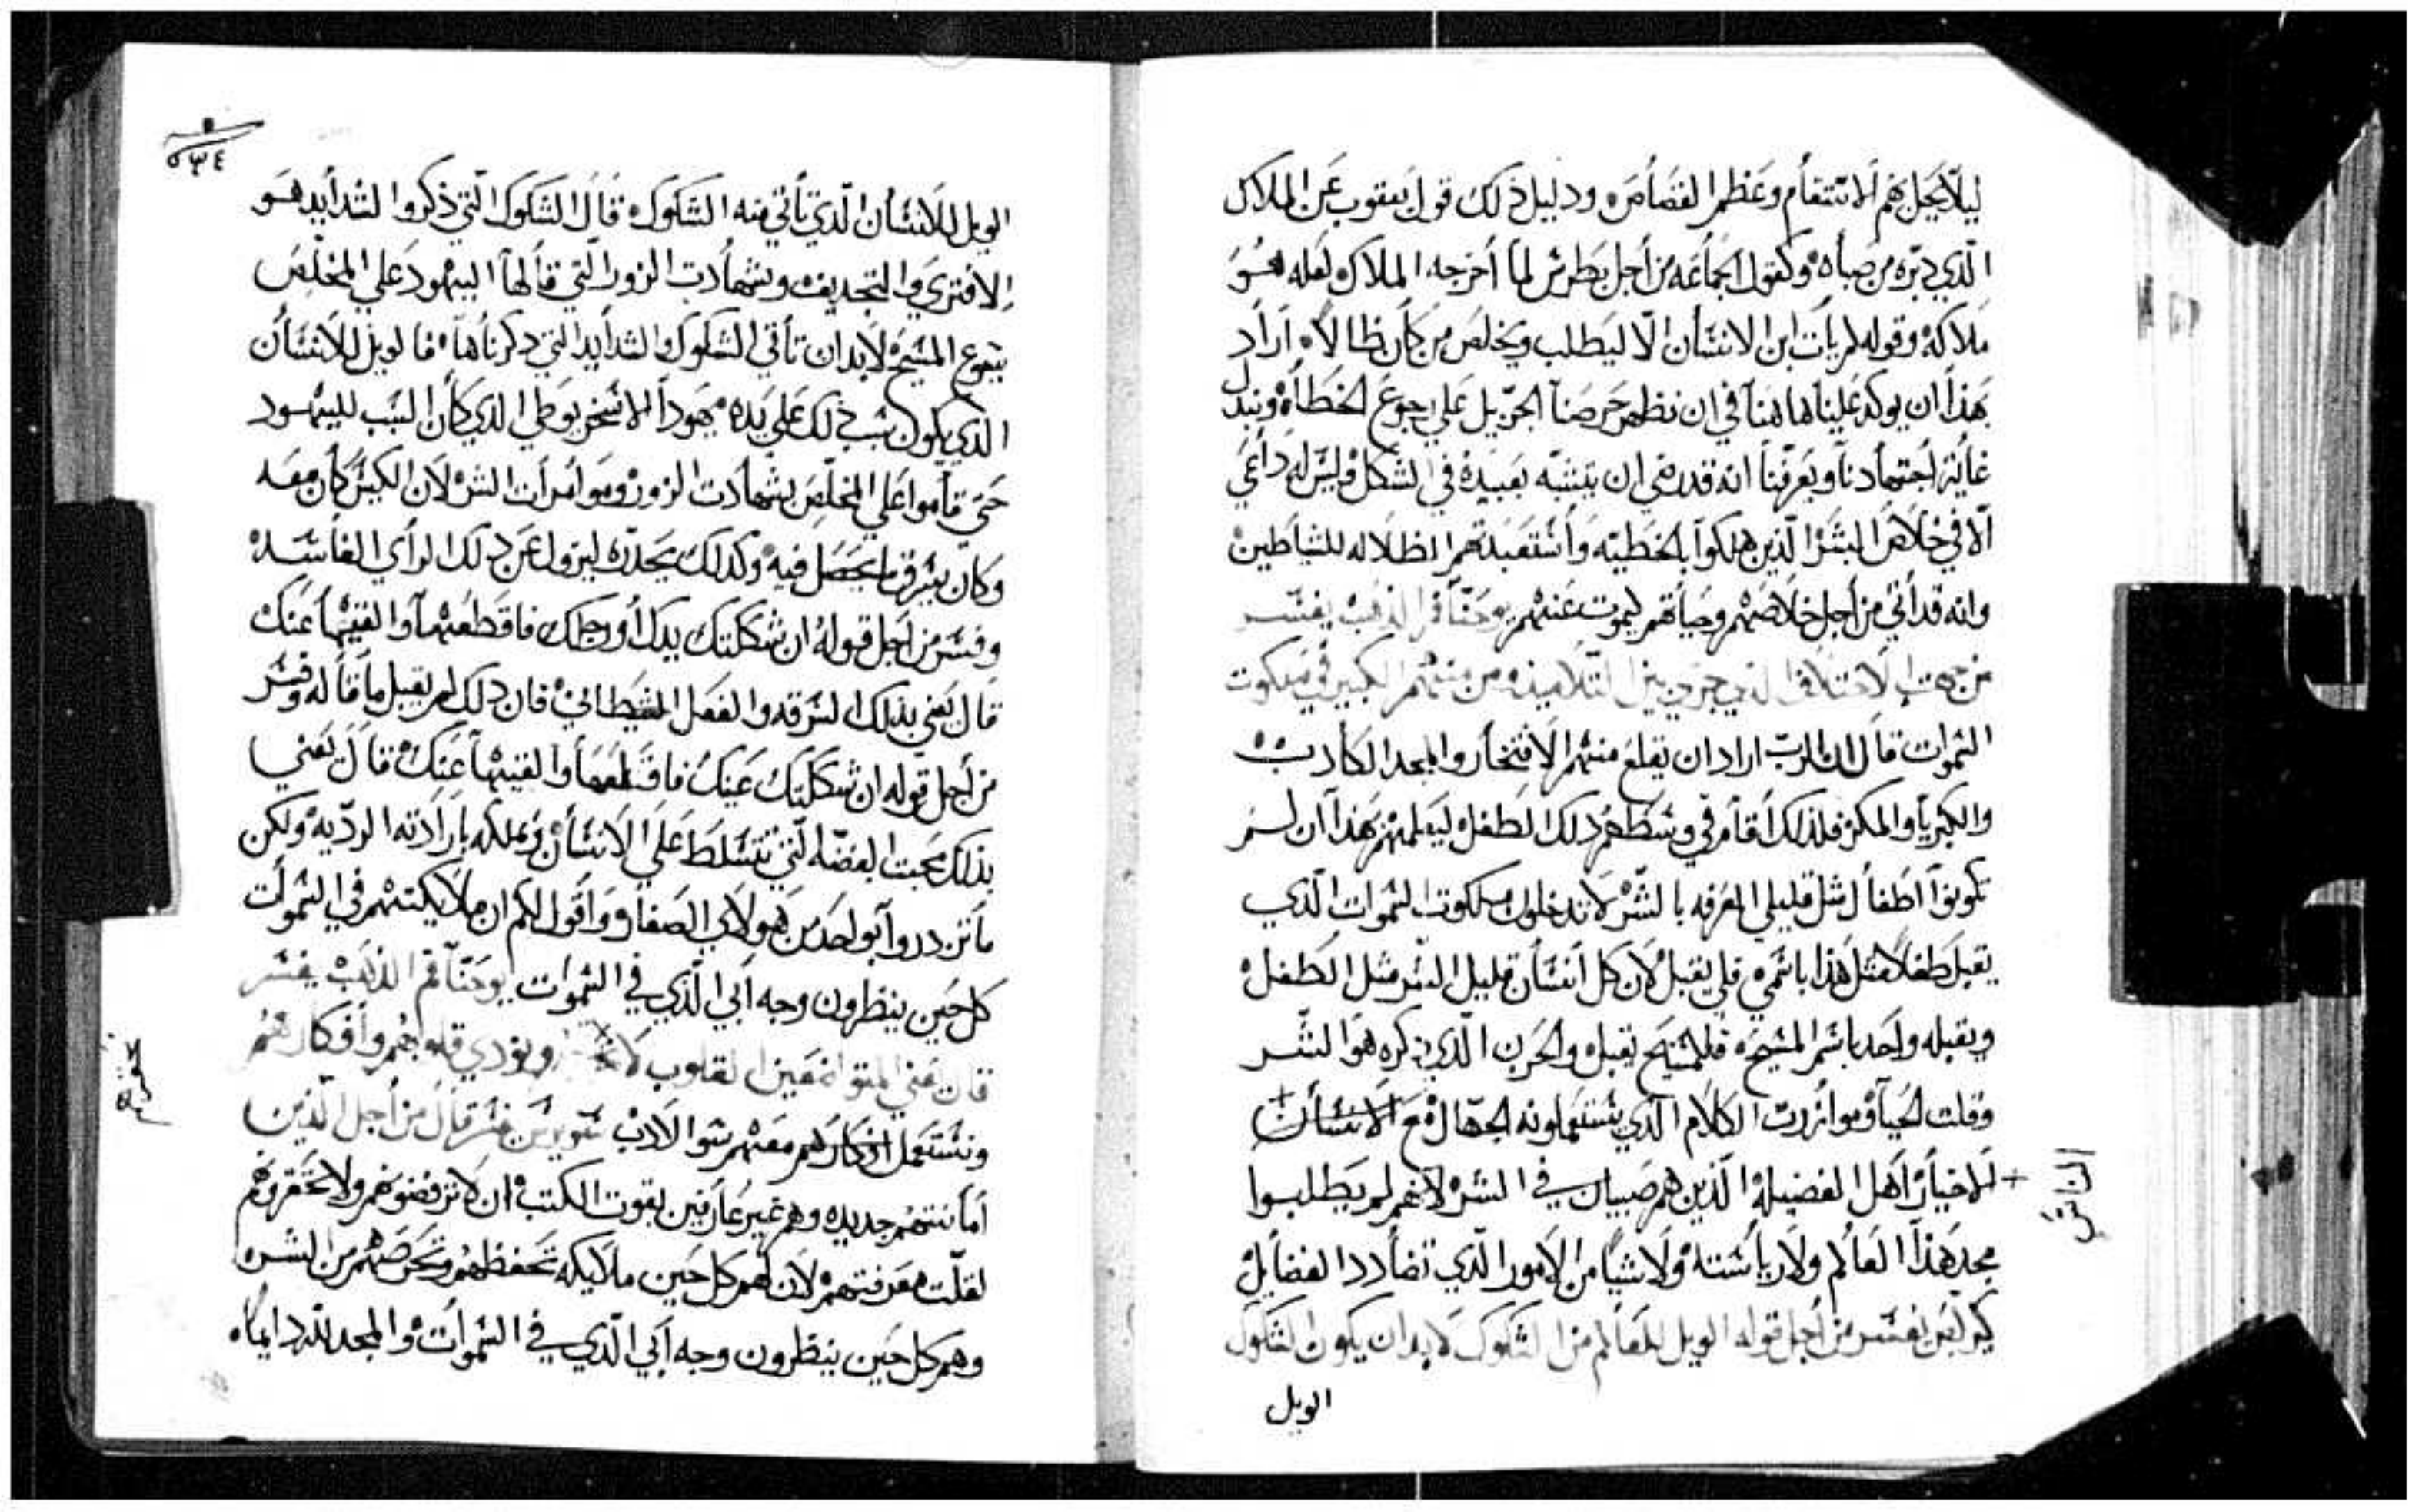 ليلا يحل بهم الانتقام وعظم القصاص ودليل ذلك قول يعقوب عن الملاك
الذي دبره من صباه وكقول الجماعه من اجل بطرس لما أخرجه الملاك لعله هو
ملاكه وقوله لم يأت ابن الانسان الا ليطلب ويخلص من كان ظالا اراد
بهذا ان يوكد علينا هاهنا في ان نظهر حرصنا الجزيل علي رجوع الخطاه ونبدل
غاية اجتهادنا ويعرفنا انه قد رضي ان يتشبه بعبيده في الشكل وليس له داعي
الا في خلاص البشر الذين هلكوا بالخطيه وأستعبدتهم الظلاله للشياطين
وانه قد أتي من أجل خلاصهم وحياتهم ليموت عنهم يوحنا فم الذهب يفسر
من جهت الاختلاف الذي جري بين التلاميذ من منهم الكبير في ملكوت
السموات قال ان الرب اراد ان يقلع منهم الافتخار والمجد الكادب
والكبريا والمكر فلذلك اقام في وسطهم دلك الطفل ليعلمهم بهذا ان لم
تكونوا اطفال مثل قليلي المعرفه بالشر لا تدخلون ملكوت السموات الذي
يقبل طفلا مثل هذا باسمي فلي يقبل لان كل انسان قليل الشر مثل الطفل
ويقبله واحد باسم المسيح فللمسيح يقبل والحزن الذي ذكره هو الشر
وقلت الحيا وموازرت الكلام الذي يستعملونه الجهال مع الانسان
+ الاخيار اهل الفضيله الذين هم صبيان في الشر لانهم لم يطلبوا
مجد هذا العالم ولا رياسته ولا شيا من الامور الذي تضادد الفضايل
كيرلس يفسر من أجل قوله الويل للعالم من الشكوك لابد ان يكون الشكوك
الويل
٥٣٤
الويل للانسان الذي تأتي منه الشكوك قال الشكوك التي ذكروا الشدايد هو
الافتري والتجديف وشهادت الزور التي قالها اليهود علي المخلص
يسوع المسيح لابد ان تأتي الشكوك والشدايد التي دكرناها فالويل للانسان
الذي يكون سبب ذلك علي يده يهودا الاسخريوطي الذي كان السبب لليهود
حتي قاموا علي المخلص بشهادت الزور وموامرات الشر لان الكيس كان معه
وكان يسرق ما يحصل فيه وكذلك يحدثه ليزول عن دلك الرأي الفاسد
وفسر من اجل قوله ان شككتك يدك أو رجلك فاقطعهما والقيهما عنك
قال يعني بذلك السرقه والفعل الشيطاني فان دلك لم يقبل ما قاله وفسر
من أجل قوله ان شككتك عينك فاقلعها والقيها عنك قال يعني
بذلك محبت الفضه التي تتسلط علي الانسان وتملكه بارادته الرديه ولكن
ما تزدروا بواحد من هولاي الصغار واقول لكم ان ملايكتهم في السموات
كل حين ينظرون وجه ابي الذي في السموات يوحنا فم الذهب يفسر
قال يعني المتواضعين القلوب ويودي قلوبهم وأفكارهم
ونستعمل افكارهم معهم سو الادب سويرس يفسر قال من أجل الذين
أمانتهم جديده وهم غير عارفين بقوت الكتب ان لا ترفضوهم ولا تحقروهم
لقلت معرفتهم لان لهم كل حين ملايكه تحفظهم وتحرصهم من الشر
وهم كل حين ينظرون وجه أبي الذي في السموات والمجد لله دايما